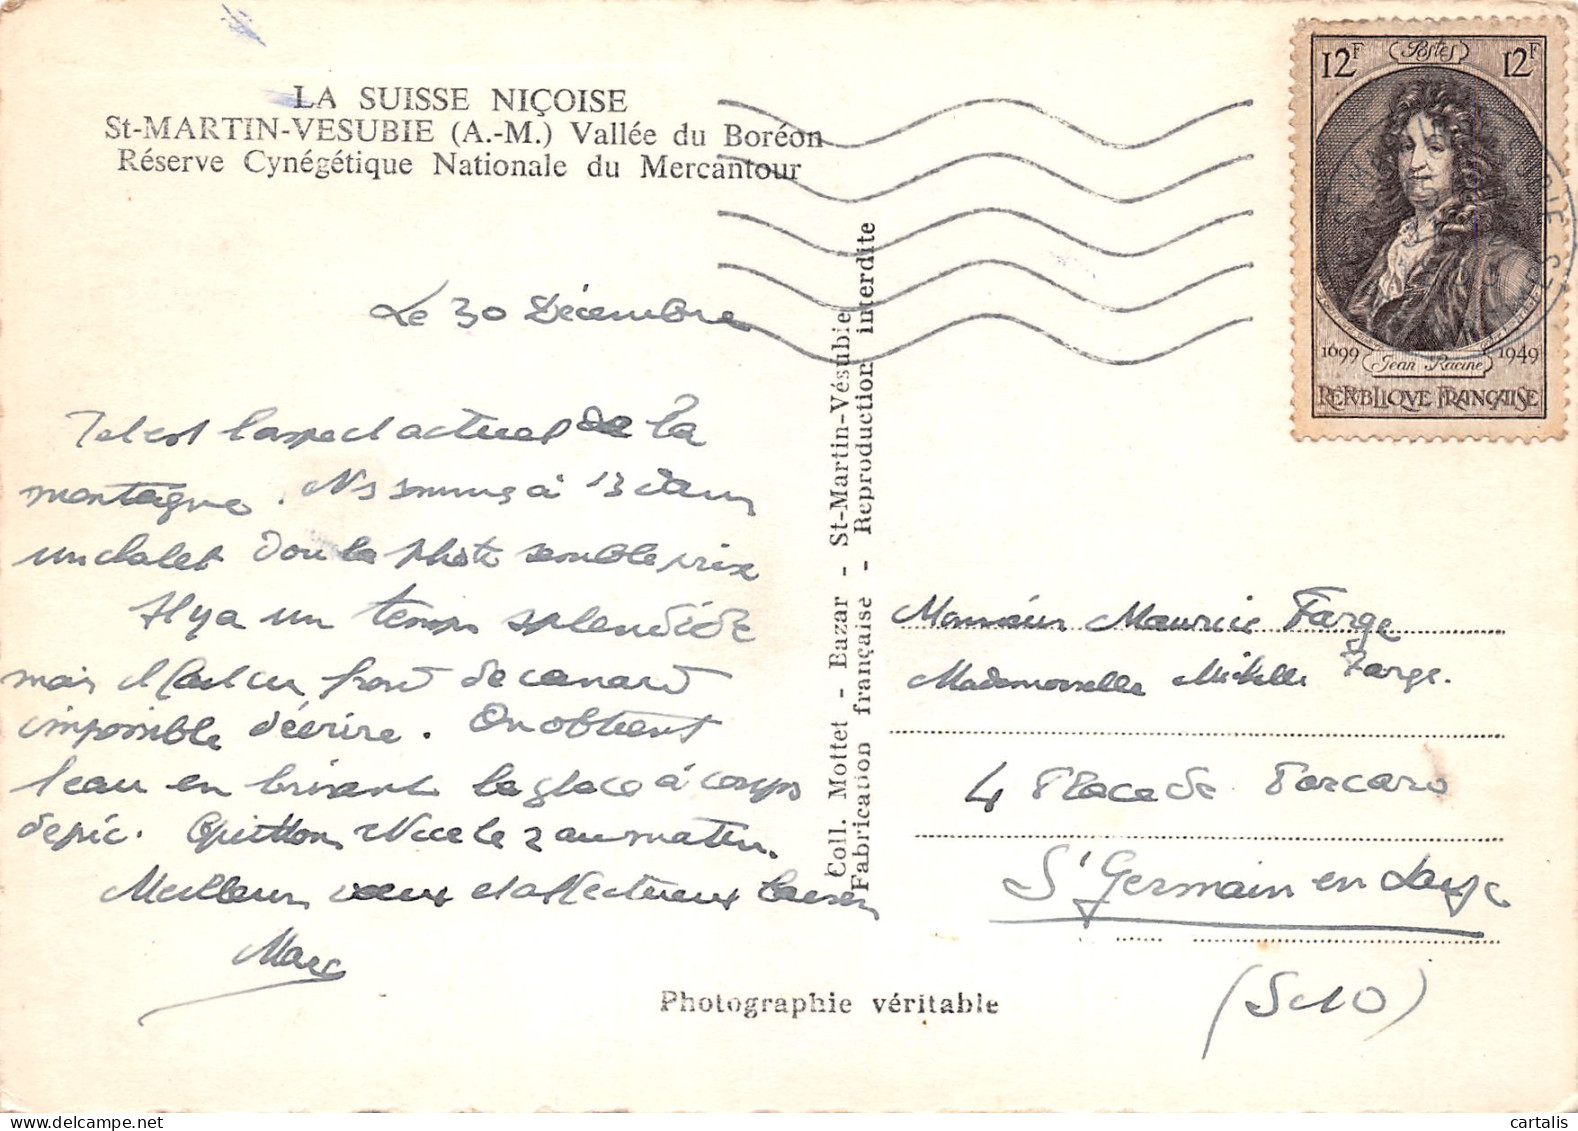 LA SUISSE NIÇOISE
St-MARTIN-VESUBIE (A.-M.) Vallée du Boréon
Réserve Cynégétique Nationale du Mercantour
12F Postes 12F
1699 Jean Racine 1949
REPUBLIQUE FRANÇAISE
Le 30 Décembre
Tel est l'aspect actuel de la
montagne. Ns sommes à 13 dans
un chalet dont la photo semble
Il y a un temps splendide
mais il fait un froid de canard
impossible d'écrire. On obtient
l'eau en brisant la glace à coups
de pic. Nice le 2 au matin.
Meilleurs voeux et affectueux baisers
Marc
Coll. Mottet - Bazar - St-Martin-Vésubie
Fabrication française - Reproduction interdite
Monsieur Maurice Farge
Mademoiselle Michelle Farge.
4 Place de
St Germain en Laye
(S et O)
Photographie véritable
cartalis